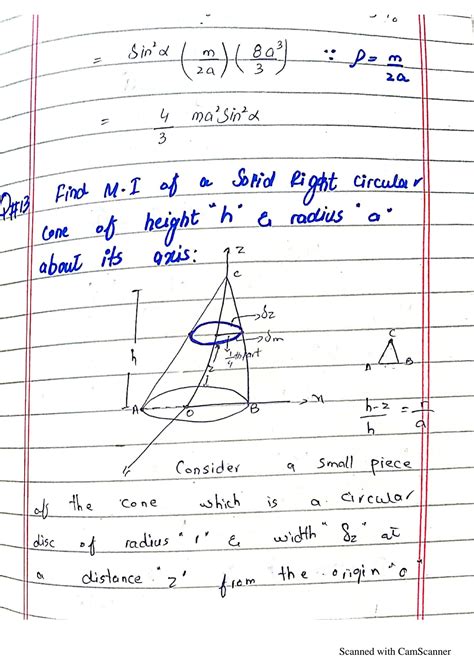 = Sin²α (m/2a) (8a³/3) ∵ ρ = m/2a
= 4/3 ma²Sin²α
Q#13 Find M.I of a Solid Right circular
cone of height "h" & radius "a"
about its axis:
z
C
δz
δm
h
z
A
O
B
x
C
A B
h-z/h = r/a
Consider a small piece
of the cone which is a circular
disc of radius "r" & width "δz" at
a distance "z" from the origin "o"
Scanned with CamScanner